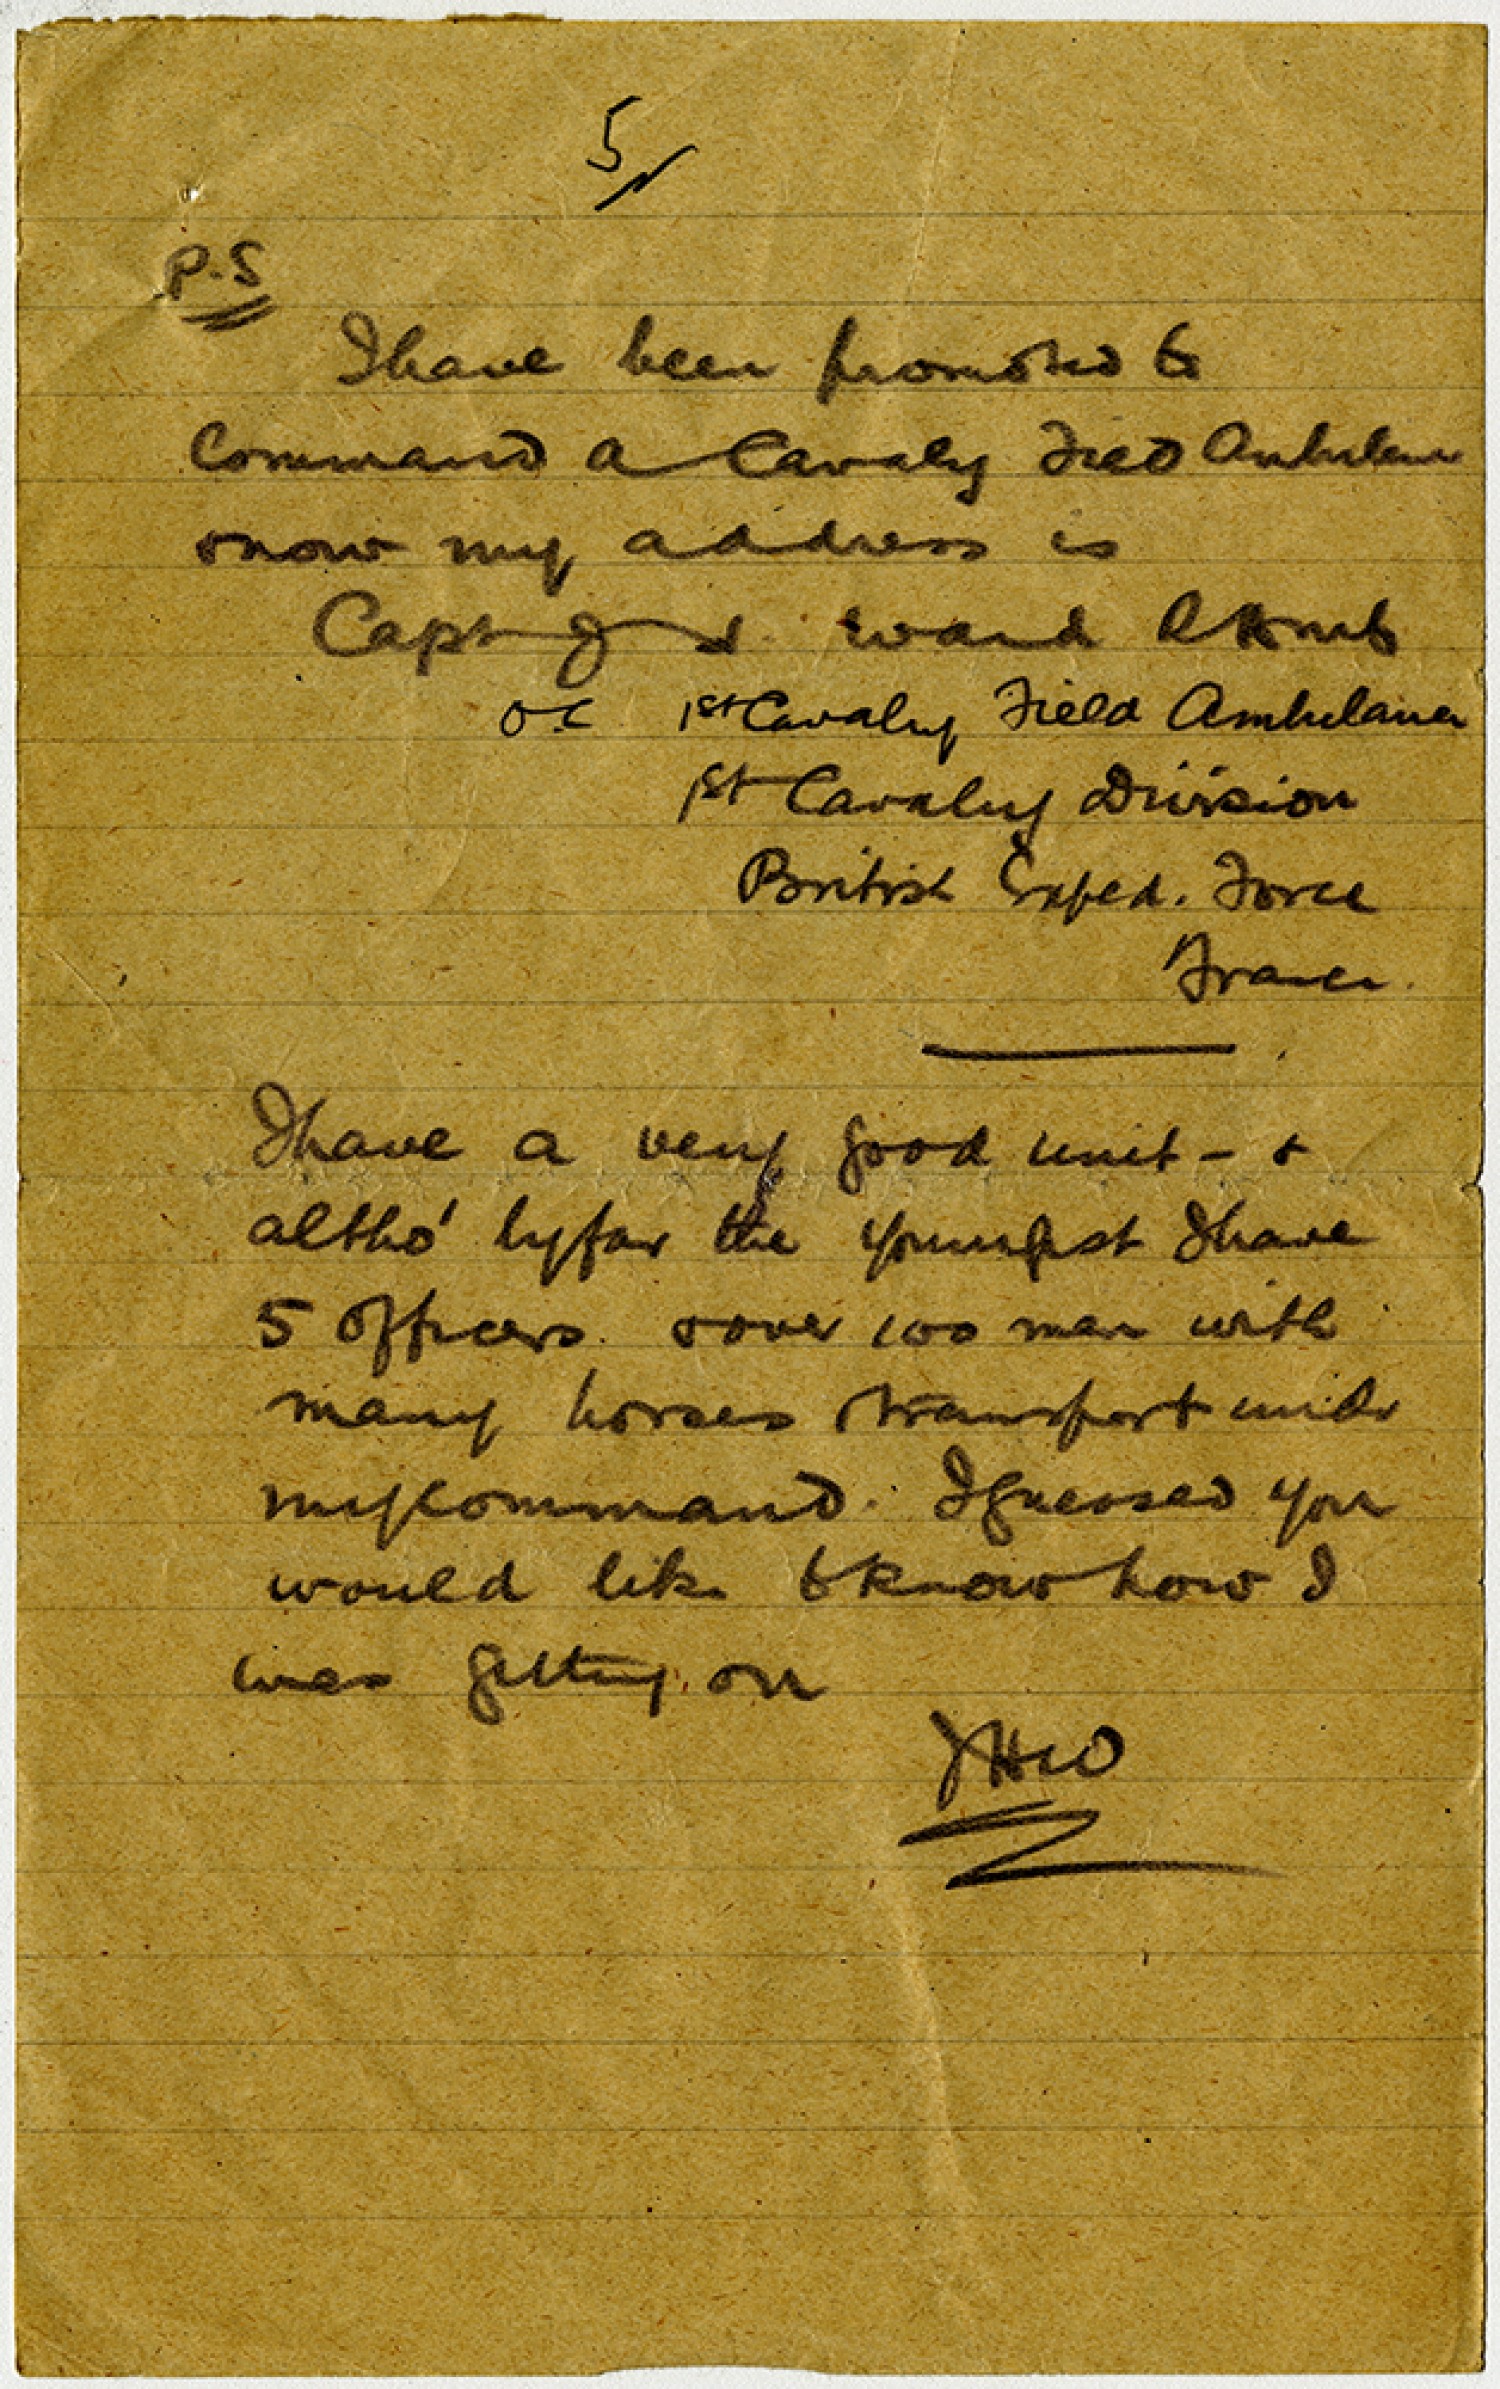 5/
P.S
I have been promoted to
Command a Cavalry Field Ambulance
& now my address is
Capt J H Ward RAMC
O.C 1st Cavalry Field Ambulance
1st Cavalry Division
British Exped. Force
France.
I have a very good unit - &
altho' by far the youngest I have
5 officers & over 100 men with
many horses & transport under
my command. I guessed you
would like to know how I
was getting on
JHW